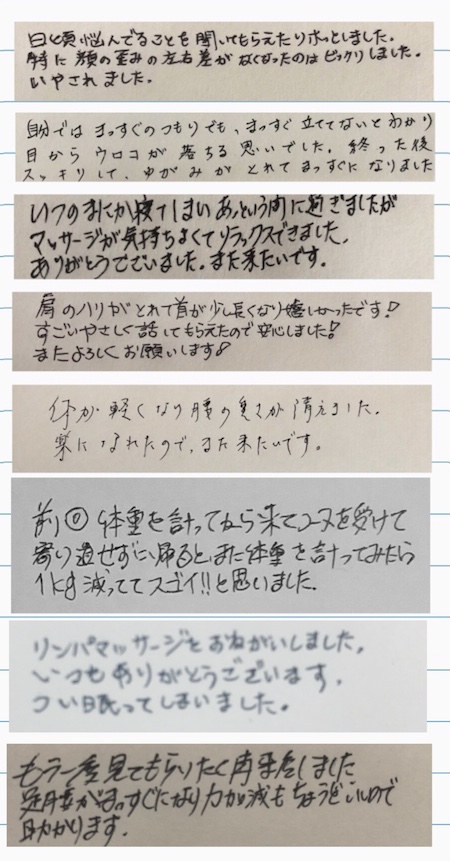 日頃悩んでることを聞いてもらえたりホッとしました。
特に顔の歪みの左右差がなくなったのはビックリしました。
いやされました。
自分ではまっすぐのつもりでも、まっすぐ立ててないとわかり
目からウロコが落ちる思いでした。終った後
スッキリして、ゆがみがとれてまっすぐになりました
いつのまにか寝てしまいあっという間に過ぎましたが
マッサージが気持ちよくてリラックスできました。
ありがとうございました。また来たいです。
肩のハリがとれて首が少し長くなり嬉しかったです!
すごいやさしく話してもらえたので安心しました!
またよろしくお願いします!
体が軽くなり腰の重さが消えました。
楽になれたので、また来たいです。
前回体重を計ってから来てコースを受けて
寄り道せずに帰ると、また体重を計ってみたら
1kg減っててスゴイ!!と思いました。
リンパマッサージをおねがいしました。
いつもありがとうございます。
つい眠ってしまいました。
もう一度見てもらいたく再来店しました
足腰がまっすぐになり力加減もちょうどいいので
助かります。